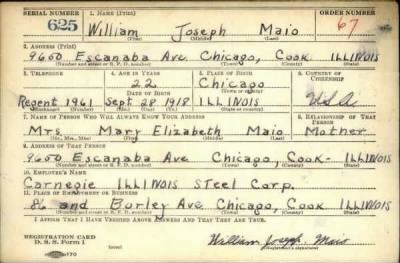 SERIAL NUMBER 1. NAME (Print) ORDER NUMBER
625 William Joseph Maio 67
(First) (Middle) (Last)
2. ADDRESS (Print)
9600 Escanaba Ave. Chicago, Cook ILLINOIS
(Number and street or R. F. D. number) (Town) (County) (State)
3. TELEPHONE 4. AGE IN YEARS 5. PLACE OF BIRTH 6. COUNTRY OF CITIZENSHIP
22 Chicago
DATE OF BIRTH (Town or county)
Regent 1961 Sept 28 1918 ILLINOIS U.S.A.
(Exchange) (Number) (Mo.) (Day) (Yr.) (State or country)
7. NAME OF PERSON WHO WILL ALWAYS KNOW YOUR ADDRESS 8. RELATIONSHIP OF THAT PERSON
Mrs Mary Elizabeth Maio Mother
(Mr., Mrs., Miss) (First) (Middle) (Last)
9. ADDRESS OF THAT PERSON
9600 Escanaba Ave Chicago, Cook- ILLINOIS
(Number and street or R. F. D. number) (Town) (County) (State)
10. EMPLOYER'S NAME
Carnegie ILLINOIS Steel Corp.
11. PLACE OF EMPLOYMENT OR BUSINESS
86 and Burley Ave Chicago, Cook ILLINOIS
(Number and street or R. F. D. number) (Town) (County) (State)
I AFFIRM THAT I HAVE VERIFIED ABOVE ANSWERS AND THAT THEY ARE TRUE.
REGISTRATION CARD
D. S. S. Form 1 William Joseph Maio
(Registrant's signature)